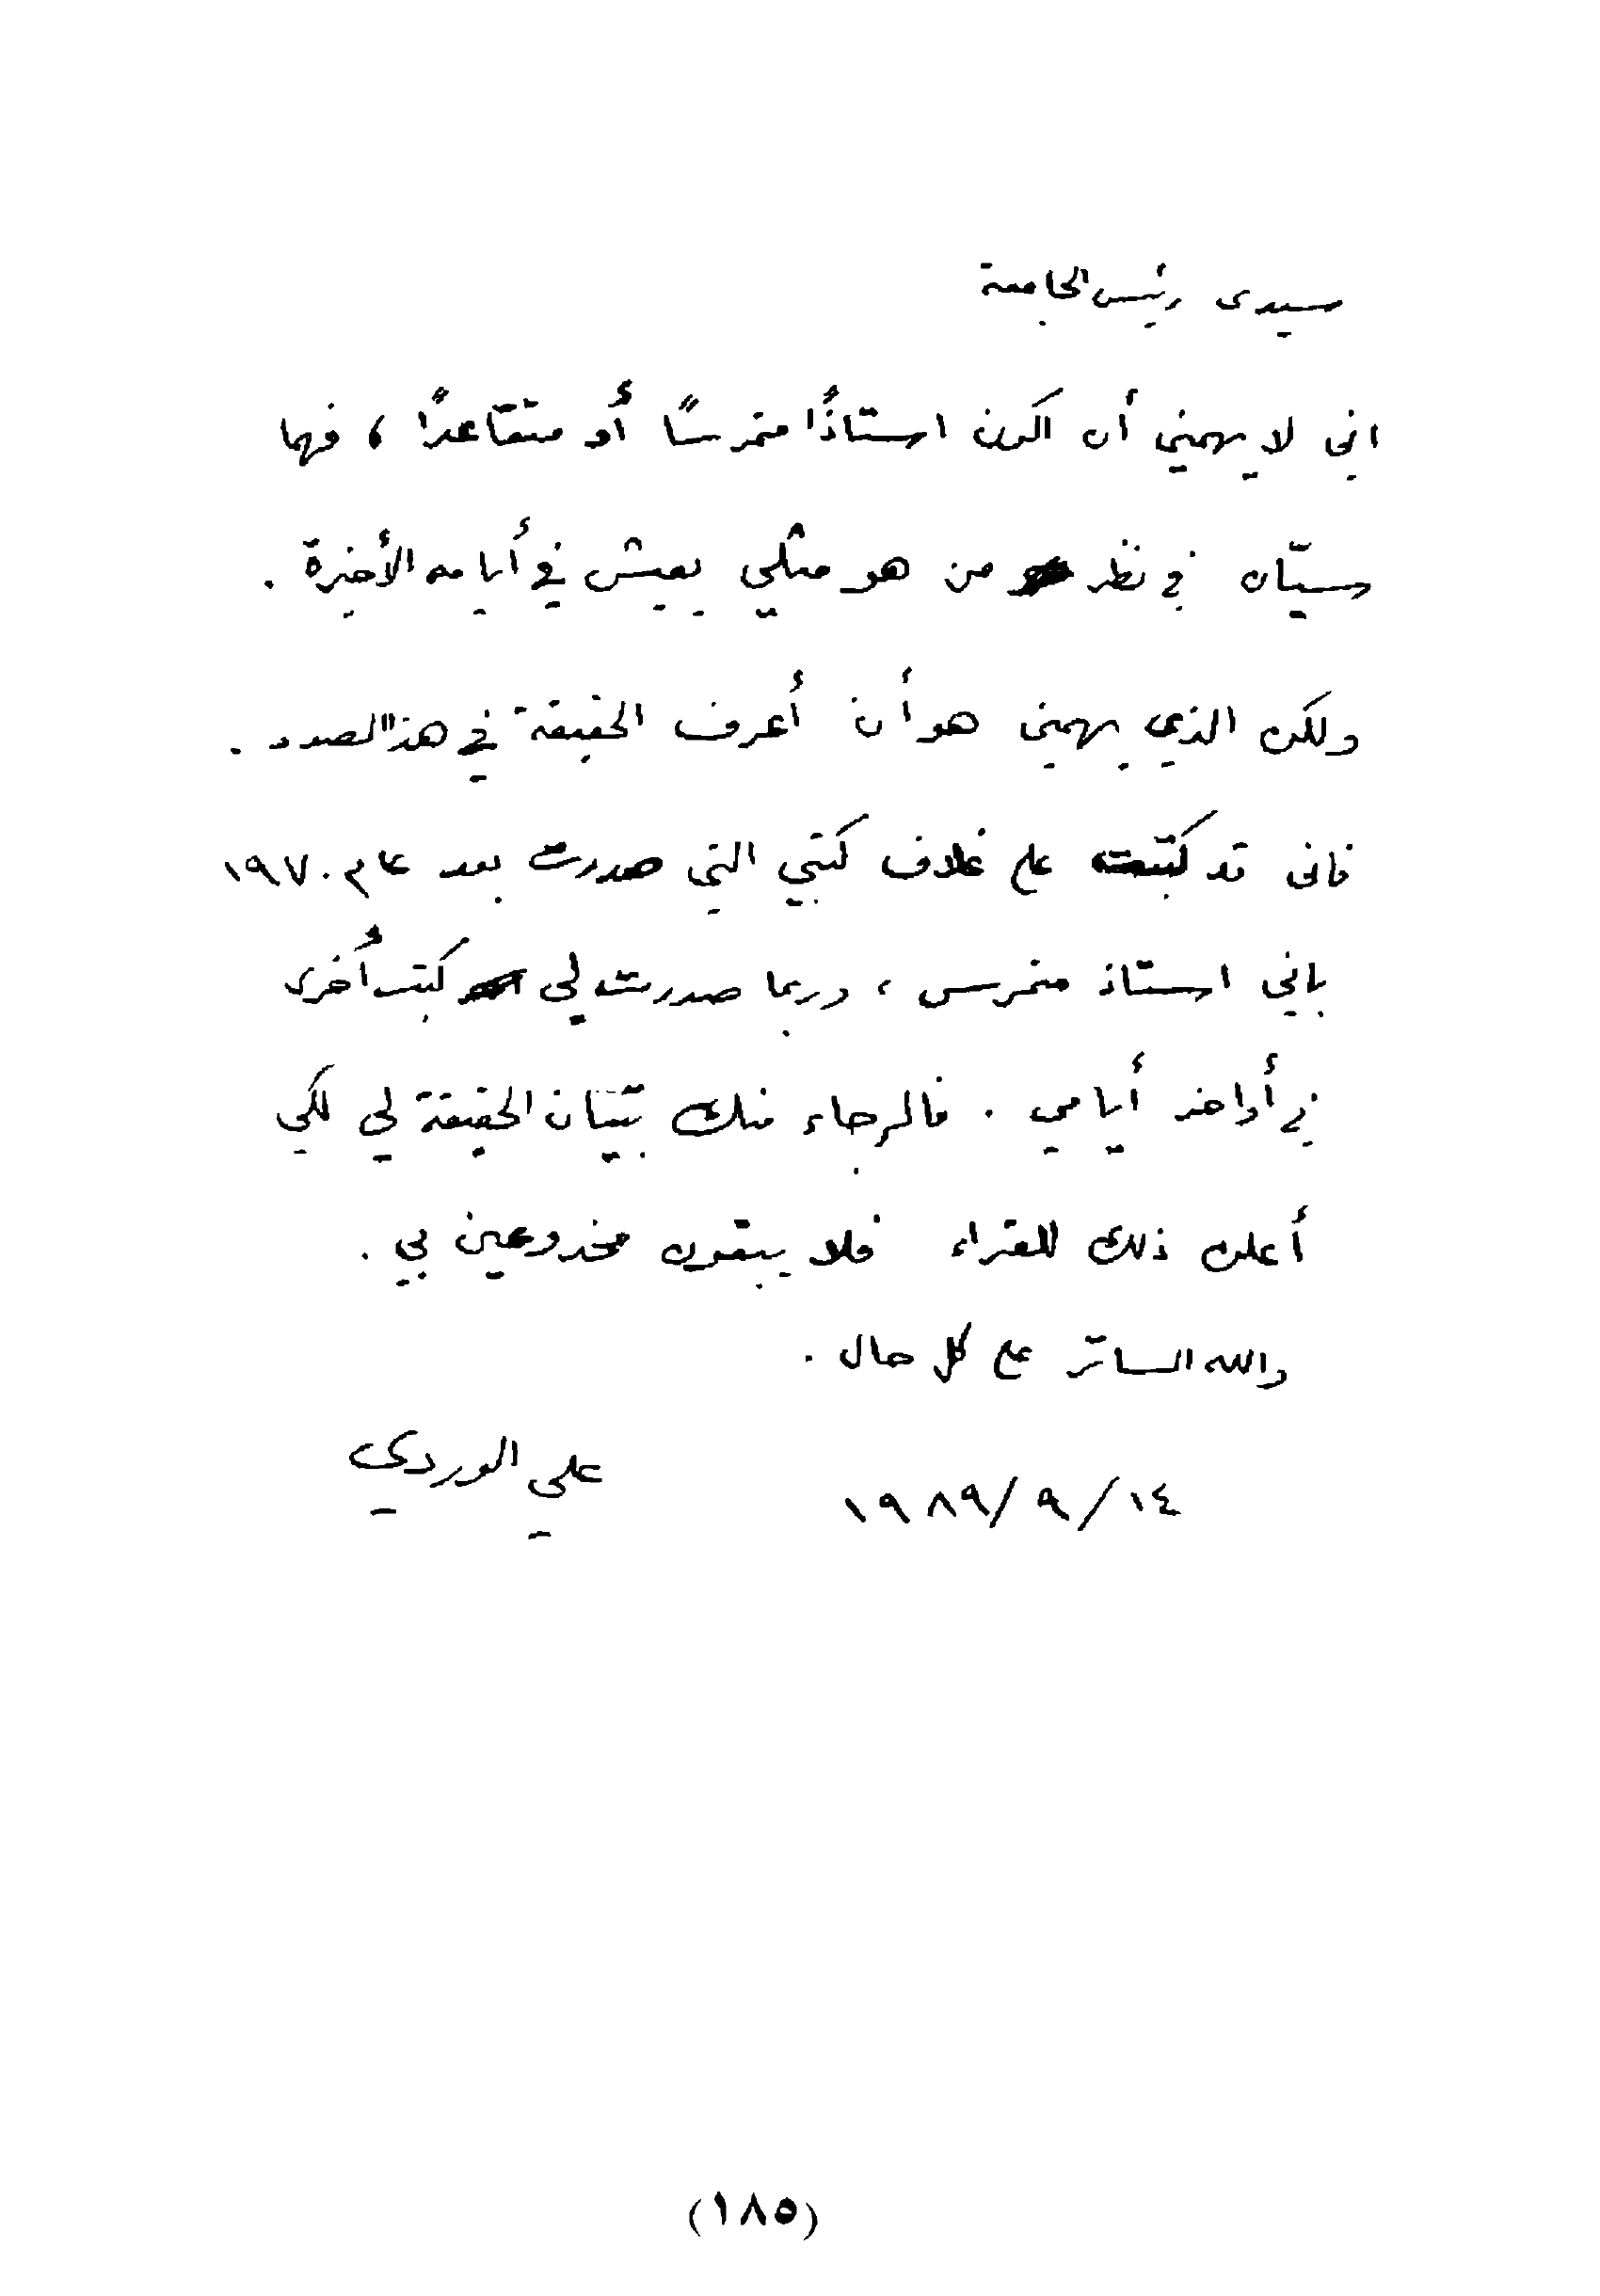 سيدى رئيس الجامعة
اني لا يهمني أن اكون استاذًا متمرسًا أو متقاعدًا ، فهما
سيّان في نظر من هو مثلي يعيش في أيامه الأخيرة .
ولكن الذي يهمني هو أن أعرف الحقيقة في هذا الصدد .
فانى قد كتبت على غلاف كتبي التي صدرت بعد عام ١٩٧٠
باني استاذ متمرس ، وربما صدرت لي كتب أُخرى
في أواخر أيامي . فالرجاء منك تبيان الحقيقة لي لكي
أعلن ذلك للقراء فلا يبقون مخدوعين بي .
والله الساتر على كل حال .
علي الوردي
١٤/٩/١٩٨٩
(١٨٥)